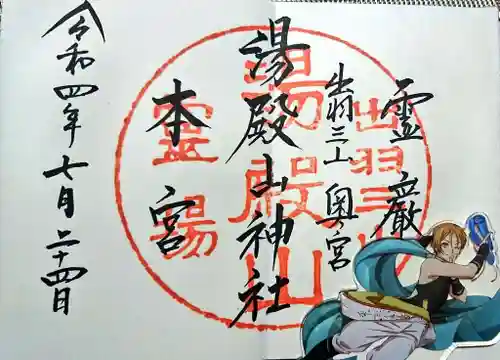 靈嚴
出羽三山 奥ノ宮
湯殿山神社
本宮
令和四年七月二十四日
出羽三山
湯殿山
靈場